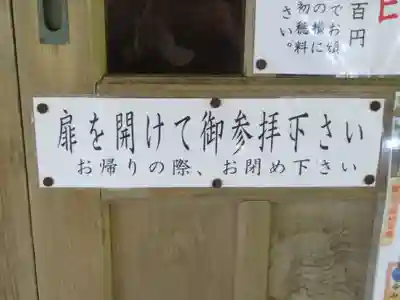 扉を開けて御参拝下さい
お帰りの際、お閉め下さい
百円
でお頒
の横に
初穂料
さい。